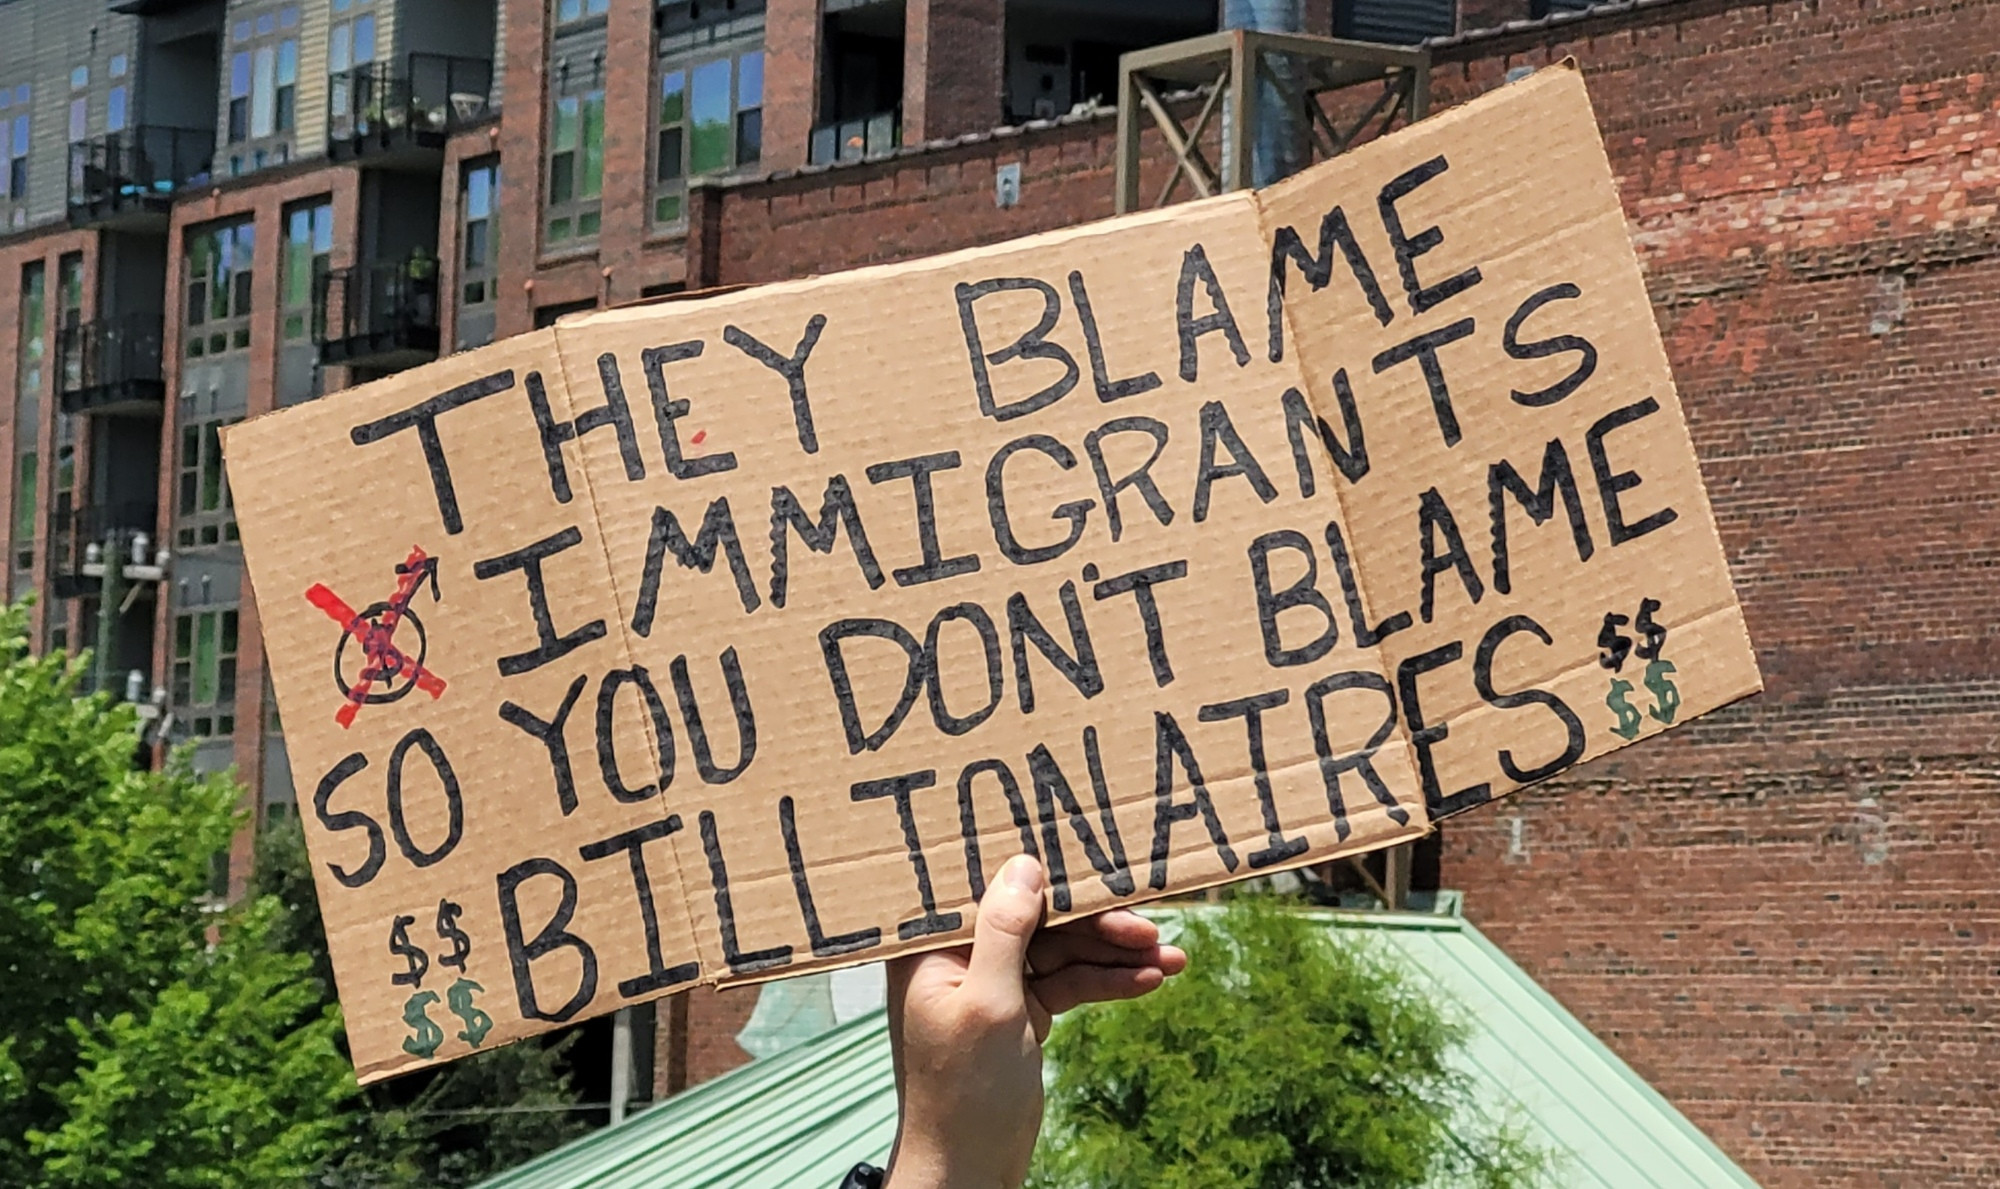 THEY BLAME
IMMIGRANTS
SO YOU DON'T BLAME
BILLIONAIRES
$$
$$
$$
$$